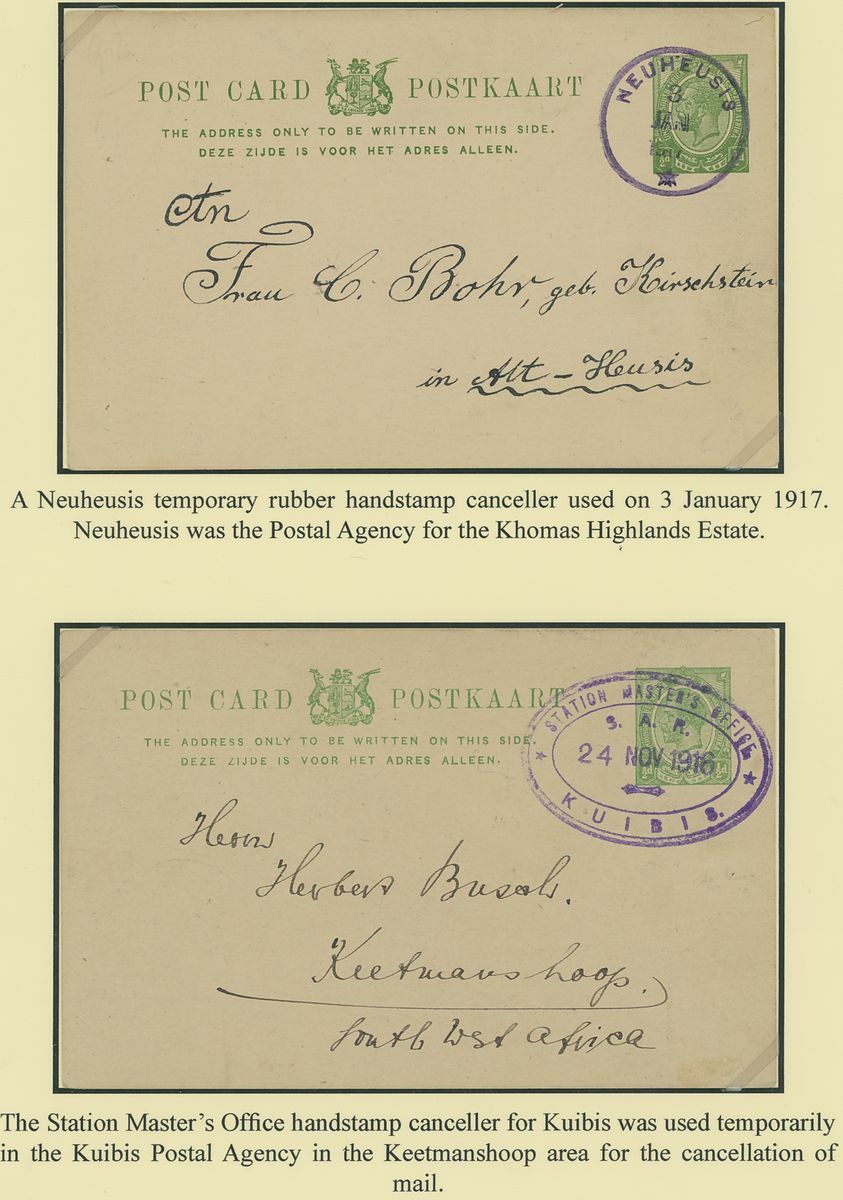 POST CARD POSTKAART
THE ADDRESS ONLY TO BE WRITTEN ON THIS SIDE.
DEZE ZIJDE IS VOOR HET ADRES ALLEEN.
NEUHEUSIS
3
JAN
½d
An
Frau C. Bohr, geb. Kirschstein
in Alt-Heusis
A Neuheusis temporary rubber handstamp canceller used on 3 January 1917.
Neuheusis was the Postal Agency for the Khomas Highlands Estate.
POST CARD POSTKAART
THE ADDRESS ONLY TO BE WRITTEN ON THIS SIDE.
DEZE ZIJDE IS VOOR HET ADRES ALLEEN.
STATION MASTER'S OFFICE
S. A. R.
24 NOV 1916
KUIBIS.
½d
Herrn
Herbert Busch.
Keetmanshoop.
South West Africa
The Station Master’s Office handstamp canceller for Kuibis was used temporarily
in the Kuibis Postal Agency in the Keetmanshoop area for the cancellation of
mail.